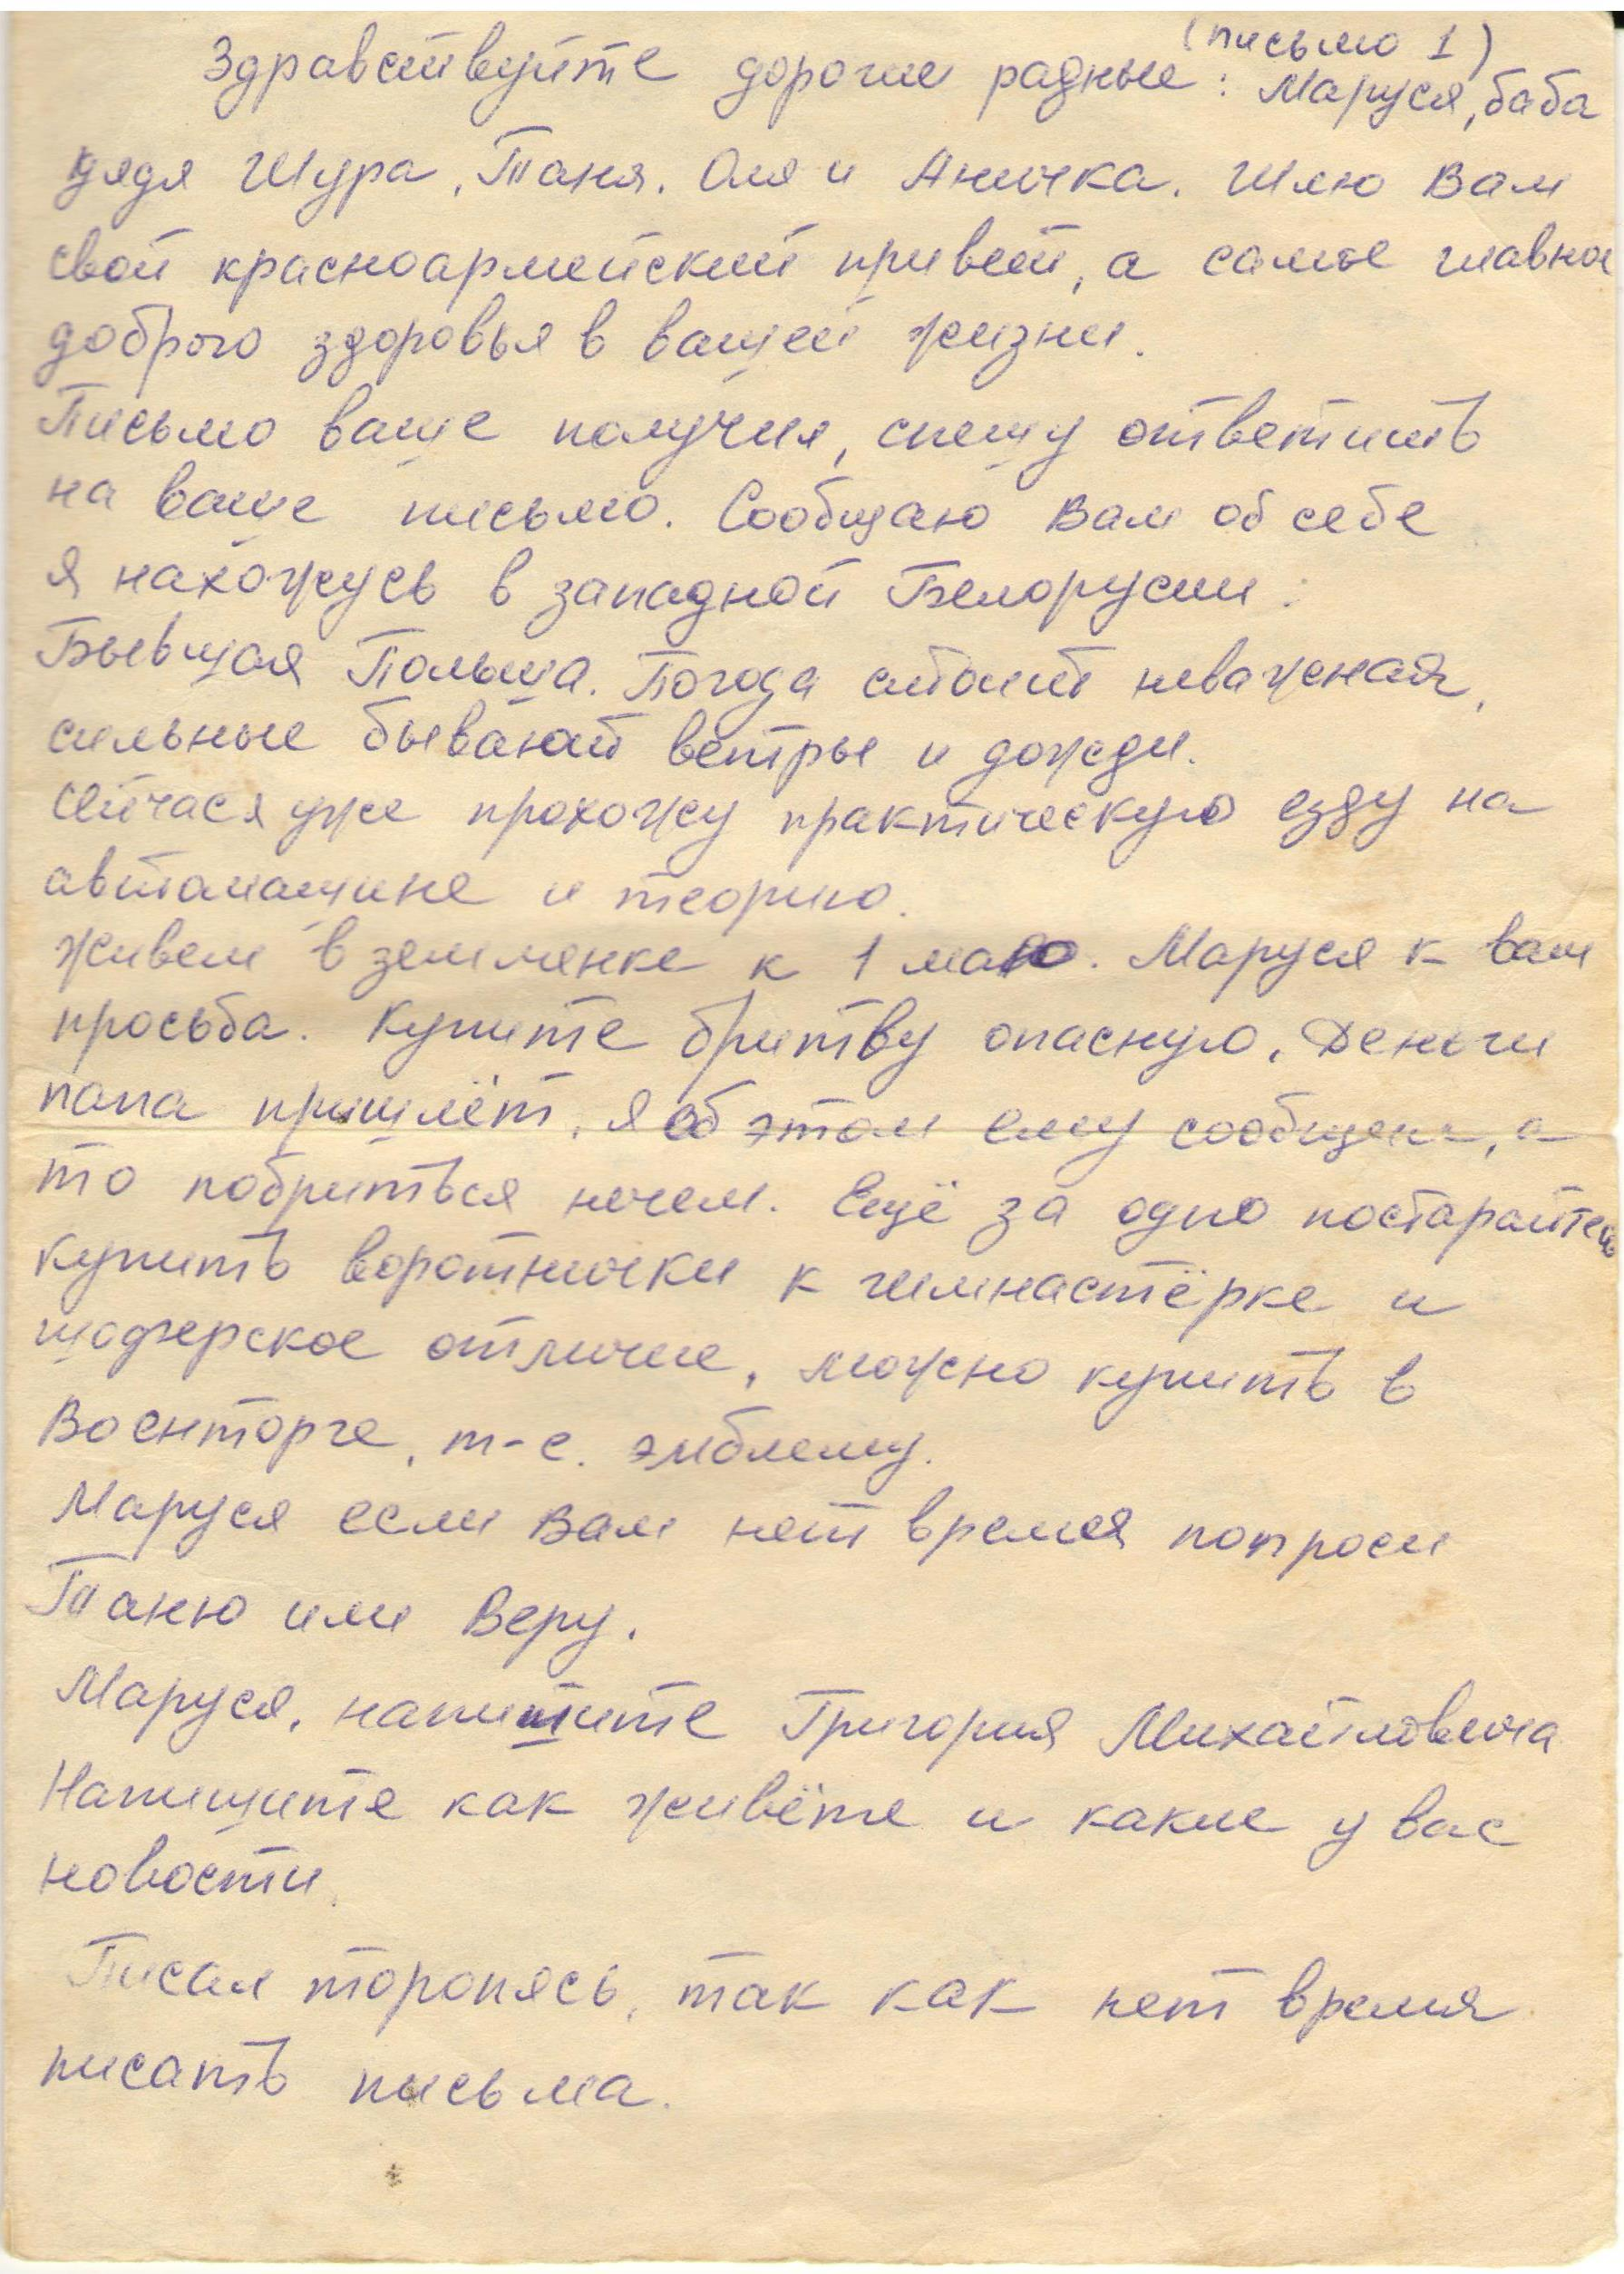 (письмо 1)
Здравствуйте дорогие радные: Маруся, баба
дядя Шура, Таня. Оля и Аничка. Шлю Вам
свой красноармейский привет, а самое главное
доброго здоровья в вашей жизни.
Письмо ваше получил, спешу ответить
на ваше письмо. Сообщаю Вам об себе
я нахожусь в западной Белорусии:
Бывшая Польша. Погода стоит неважная,
сильные бывают ветры и дожди.
Сейчас я уже прохожу практическую езду на
автомашине и теорию.
Живем в землянке к 1 маю. Маруся к вам
просьба. Купите бритву опасную, Деньги
папа пришлёт, я об этом ему сообщил, а
то побриться нечем. Ещё за одно постарайтесь
купить воротнички к гимнастёрке и
шоферское отличие, можно купить в
Военторге, т-е. эмблему.
Маруся если Вам нет время попроси
Таню или Веру.
Маруся, напишите Григория Михайловича
Напишите как живёте и какие у вас
новости.
Писал торопясь, так как нет время
писать письма.